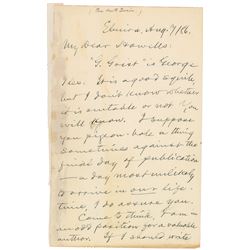 Elmira, Aug. 7/86.
My Dear Howells:
"G. Grist" is George
It is a good squib
but I don't know whether
it is suitable or not. You
will know. I suppose
you pigeon-hole a thing
sometimes against the
final day of publication
— a day most unlikely
to arrive in our life-
time, I do assure you.
Come to think, I am in
an odd position for a valuable
author. If I should write